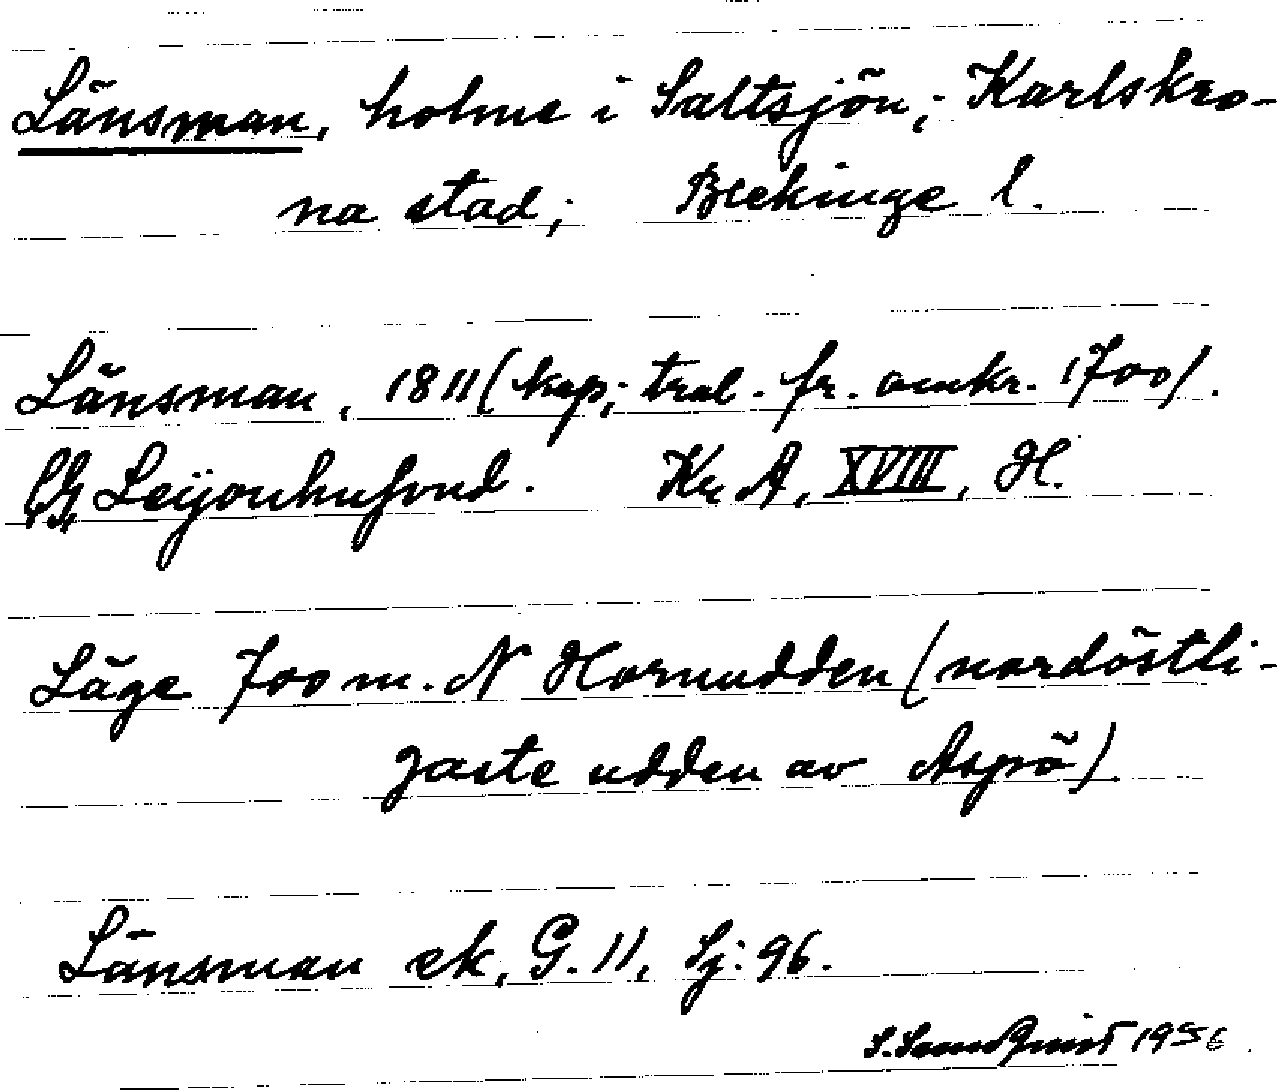 Länsman, holme i Saltsjön; Karlskro-
na stad; Blekinge l.
Länsman, 1811 (kop; tral. fr. omkr. 1700).
Leijonhufvud. Kr A, XVIII, H.
Läge 700 m. N Hornudden (nordöstli-
gaste udden av Aspö)
Länsman ek, G. 11, Sj: 96.
S. Sundquist 1956